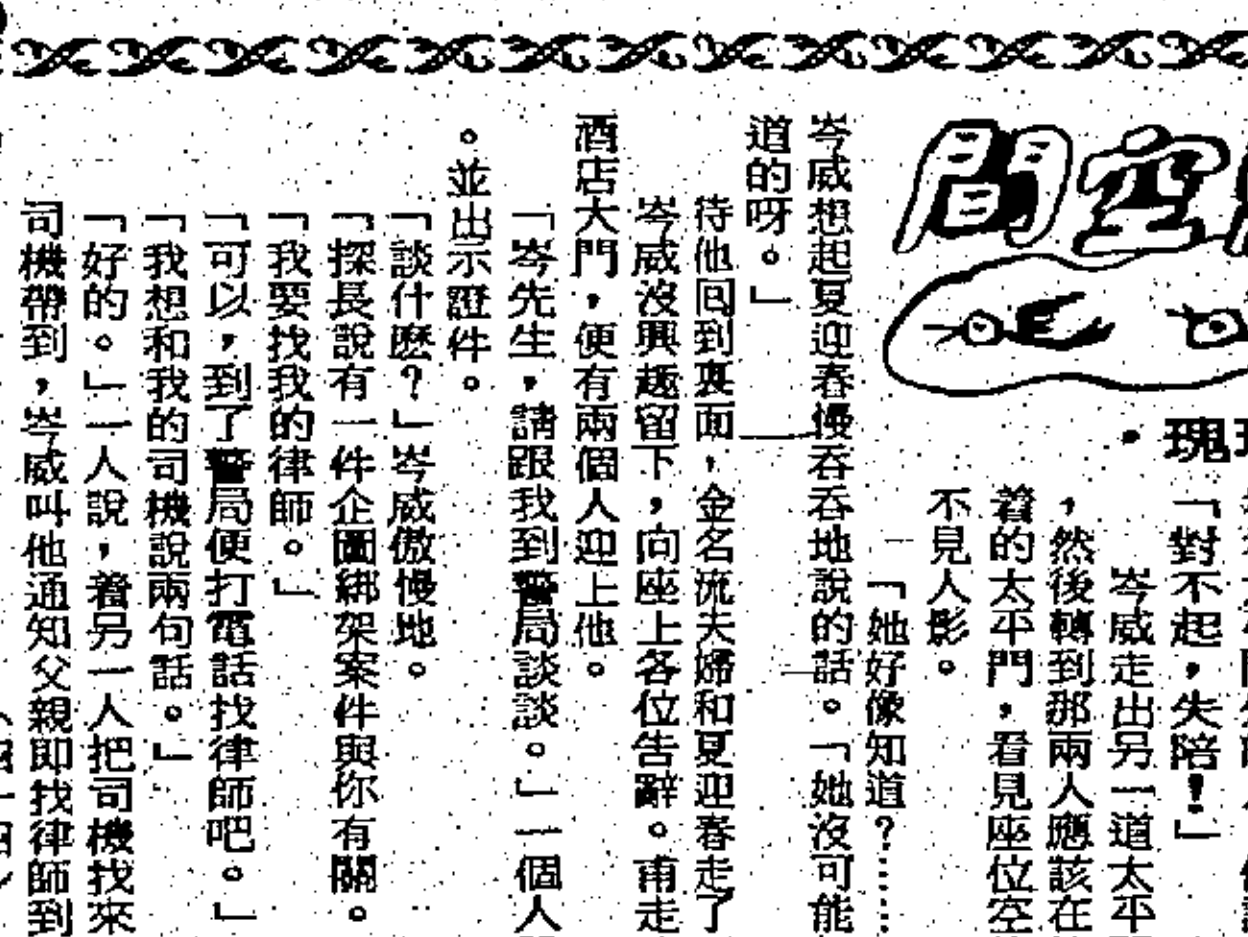 間空
・瑰
「對不起，失陪！」
岑威走出另一道太平
，然後轉到那兩人應該在
着的太平門，看見座位空
不見人影。
「她好像知道？……
岑威想起夏迎春慢吞吞地說的話。「她沒可能
道的呀。」
待他回到裏面，金名流夫婦和夏迎春走了
岑威沒興趣留下，向座上各位告辭。甫走
酒店大門，便有兩個人迎上他。
「岑先生，請跟我到警局談談。」一個人
。並出示證件。
「談什麼？」岑威傲慢地。
「探長說有一件企圖綁架案件與你有關。
「我要找我的律師。」
「可以，到了警局便打電話找律師吧。」
「我想和我的司機說兩句話。」
「好的。」一人說，着另一人把司機找來
司機帶到，岑威叫他通知父親即找律師到